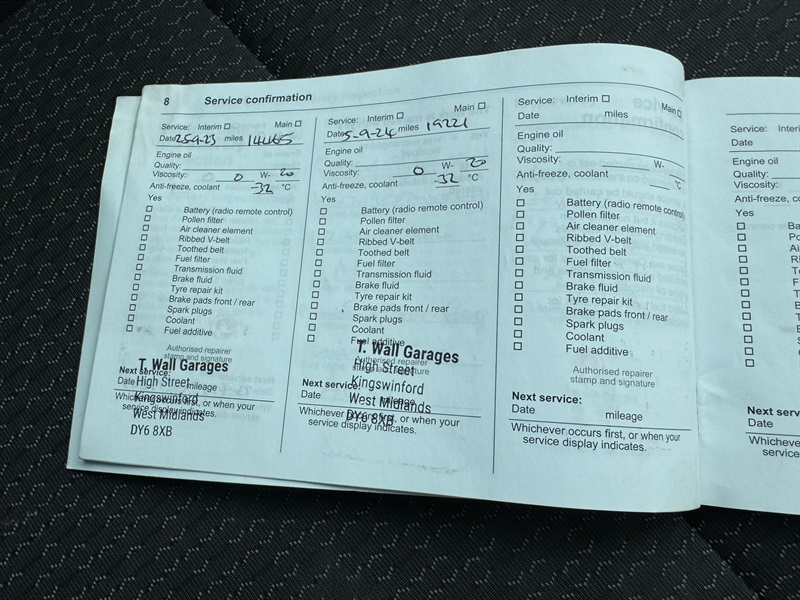 8 Service confirmation
Service: Interim ☐ Main ☐
Date 25-9-23 miles 14465
Engine oil
Quality:
Viscosity: 0 W- 20
Anti-freeze, coolant -32 °C
Yes
☐ Battery (radio remote control)
☐ Pollen filter
☐ Air cleaner element
☐ Ribbed V-belt
☐ Toothed belt
☐ Fuel filter
☐ Transmission fluid
☐ Brake fluid
☐ Tyre repair kit
☐ Brake pads front / rear
☐ Spark plugs
☐ Coolant
☐ Fuel additive
Authorised repairer
stamp and signature
T. Wall Garages
High Street
Kingswinford
West Midlands
DY6 8XB
Next service:
Date mileage
Whichever occurs first, or when your
service display indicates.
Service: Interim ☐ Main ☐
Date 5-9-24 miles 19221
Engine oil
Quality:
Viscosity: 0 W- 20
Anti-freeze, coolant -32 °C
Yes
☐ Battery (radio remote control)
☐ Pollen filter
☐ Air cleaner element
☐ Ribbed V-belt
☐ Toothed belt
☐ Fuel filter
☐ Transmission fluid
☐ Brake fluid
☐ Tyre repair kit
☐ Brake pads front / rear
☐ Spark plugs
☐ Coolant
☐ Fuel additive
Authorised repairer
stamp and signature
T. Wall Garages
High Street
Kingswinford
West Midlands
DY6 8XB
Next service:
Date mileage
Whichever occurs first, or when your
service display indicates.
Service: Interim ☐ Main ☐
Date miles
Engine oil
Quality:
Viscosity: W-
Anti-freeze, coolant °C
Yes
☐ Battery (radio remote control)
☐ Pollen filter
☐ Air cleaner element
☐ Ribbed V-belt
☐ Toothed belt
☐ Fuel filter
☐ Transmission fluid
☐ Brake fluid
☐ Tyre repair kit
☐ Brake pads front / rear
☐ Spark plugs
☐ Coolant
☐ Fuel additive
Authorised repairer
stamp and signature
Next service:
Date mileage
Whichever occurs first, or when your
service display indicates.
Service: Interi
Date
Engine oil
Quality:
Viscosity:
Anti-freeze, co
Yes
Next servi
Date
Whichever
service